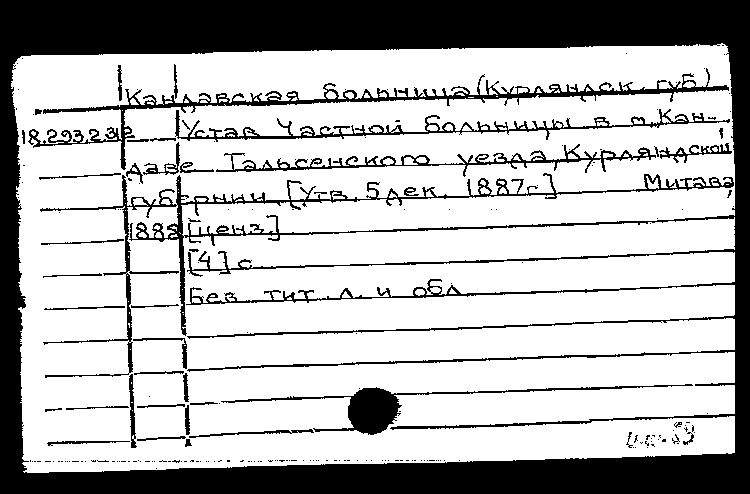 Кандавская больница (Курляндск. губ)
18.293.2.312 Устав Частной больницы в м. Кан-
даве Тальсенского уезда, Курляндской
губернии. [Утв. 5 дек. 1887г.] Митава,
1888 [ценз.]
[4] с
Без тит. л. и обл.